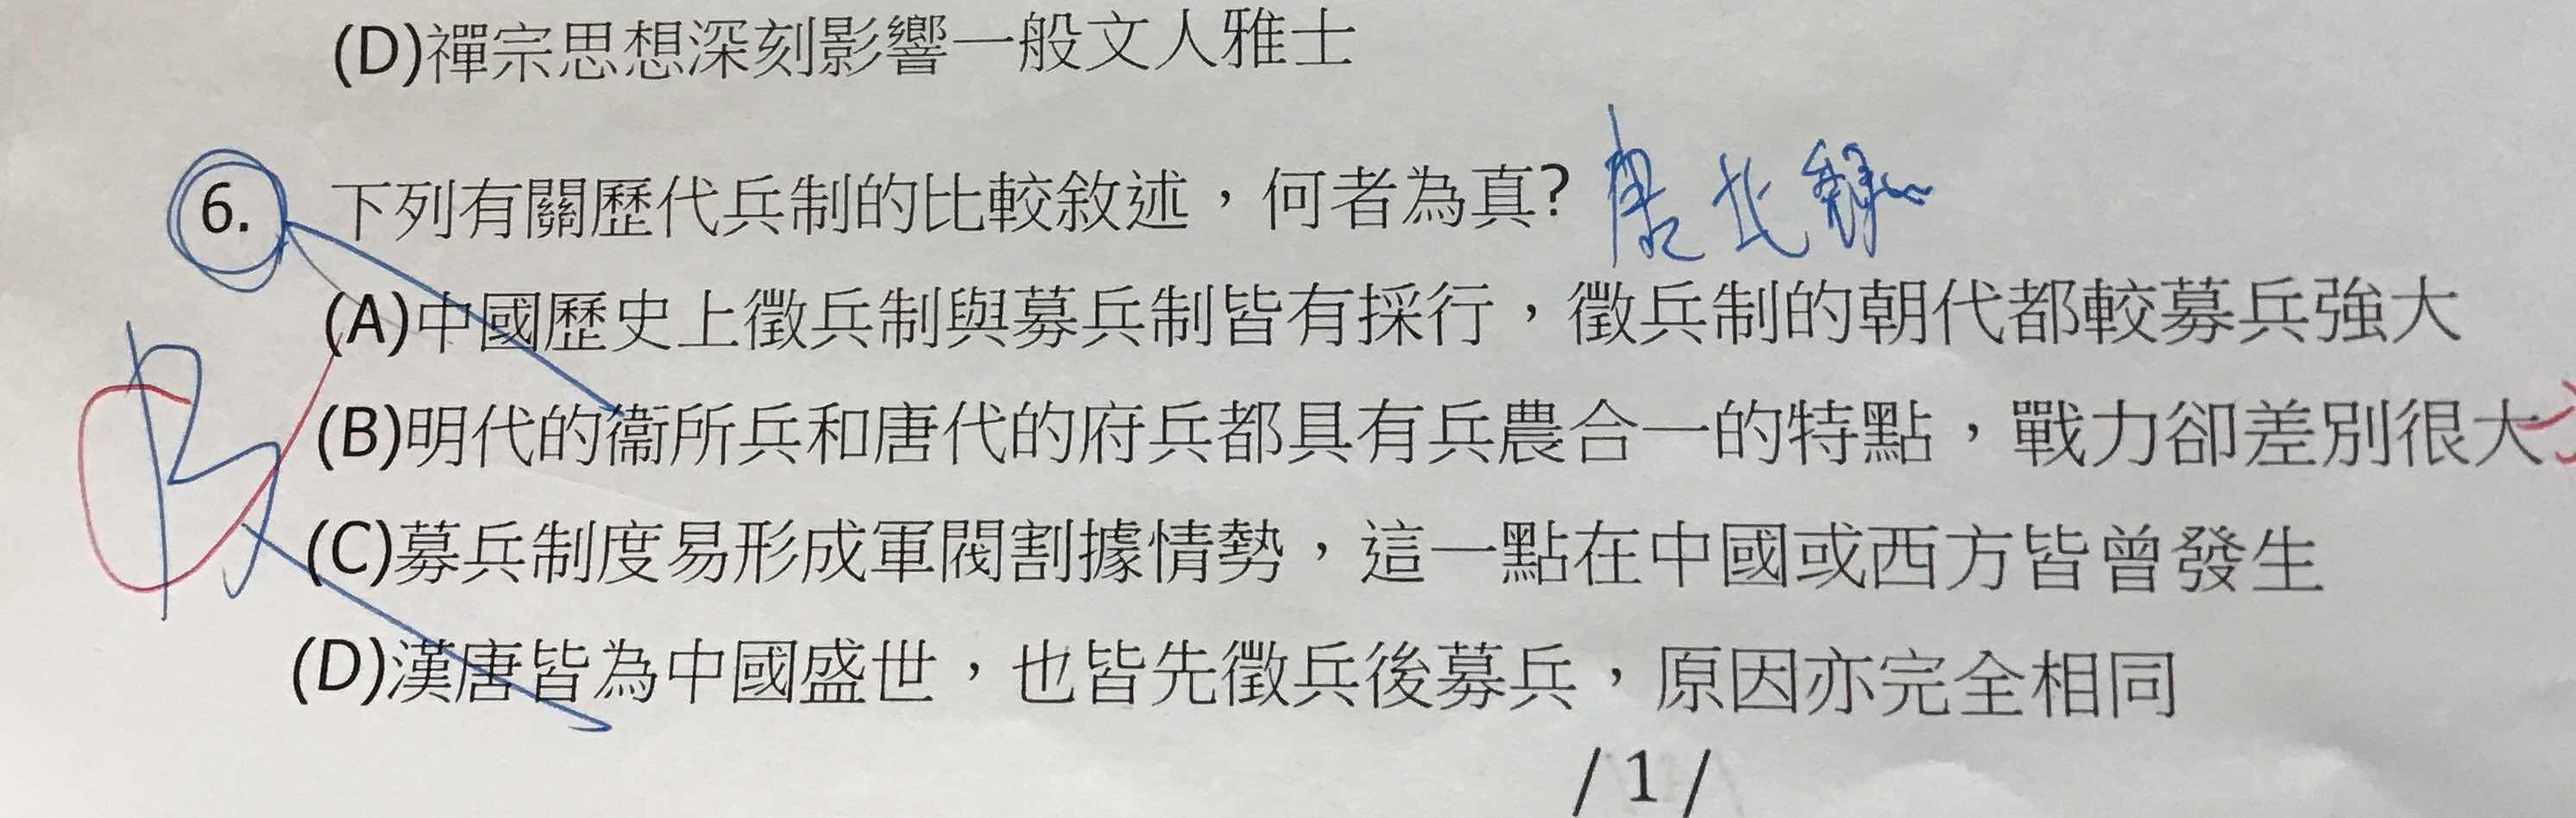 (D)禪宗思想深刻影響一般文人雅士
6. 下列有關歷代兵制的比較敘述，何者為真? 唐 北
(A)中國歷史上徵兵制與募兵制皆有採行，徵兵制的朝代都較募兵強大
(B)明代的衞所兵和唐代的府兵都具有兵農合一的特點，戰力卻差別很大
(C)募兵制度易形成軍閥割據情勢，這一點在中國或西方皆曾發生
(D)漢唐皆為中國盛世，也皆先徵兵後募兵，原因亦完全相同
/ 1 /